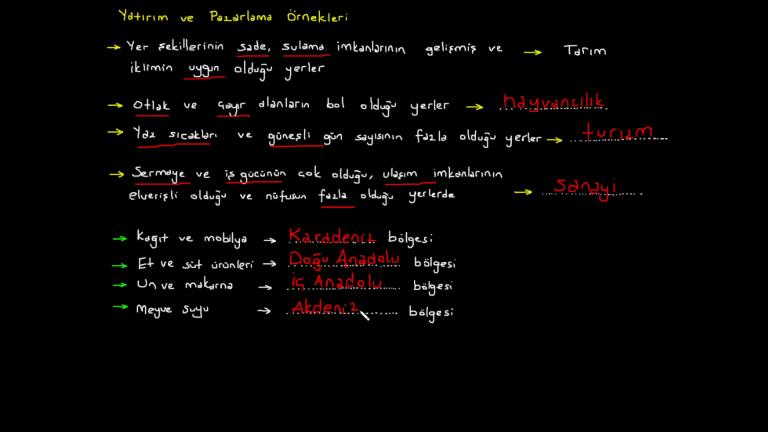 Yatırım ve Pazarlama Örnekleri
→ Yer şekillerinin sade, sulama imkanlarının gelişmiş ve → Tarım
iklimin uygun olduğu yerler
→ Otlak ve çayır alanların bol olduğu yerler → hayvancılık
→ Yaz sıcakları ve güneşli gün sayısının fazla olduğu yerler → turizm
→ Sermaye ve iş gücünün çok olduğu, ulaşım imkanlarının
elverişli olduğu ve nüfusun fazla olduğu yerlerde → sanayi
→ Kağıt ve mobilya → Karadeniz bölgesi
→ Et ve süt ürünleri → Doğu Anadolu bölgesi
→ Un ve makarna → iç Anadolu bölgesi
→ Meyve suyu → Akdeniz bölgesi